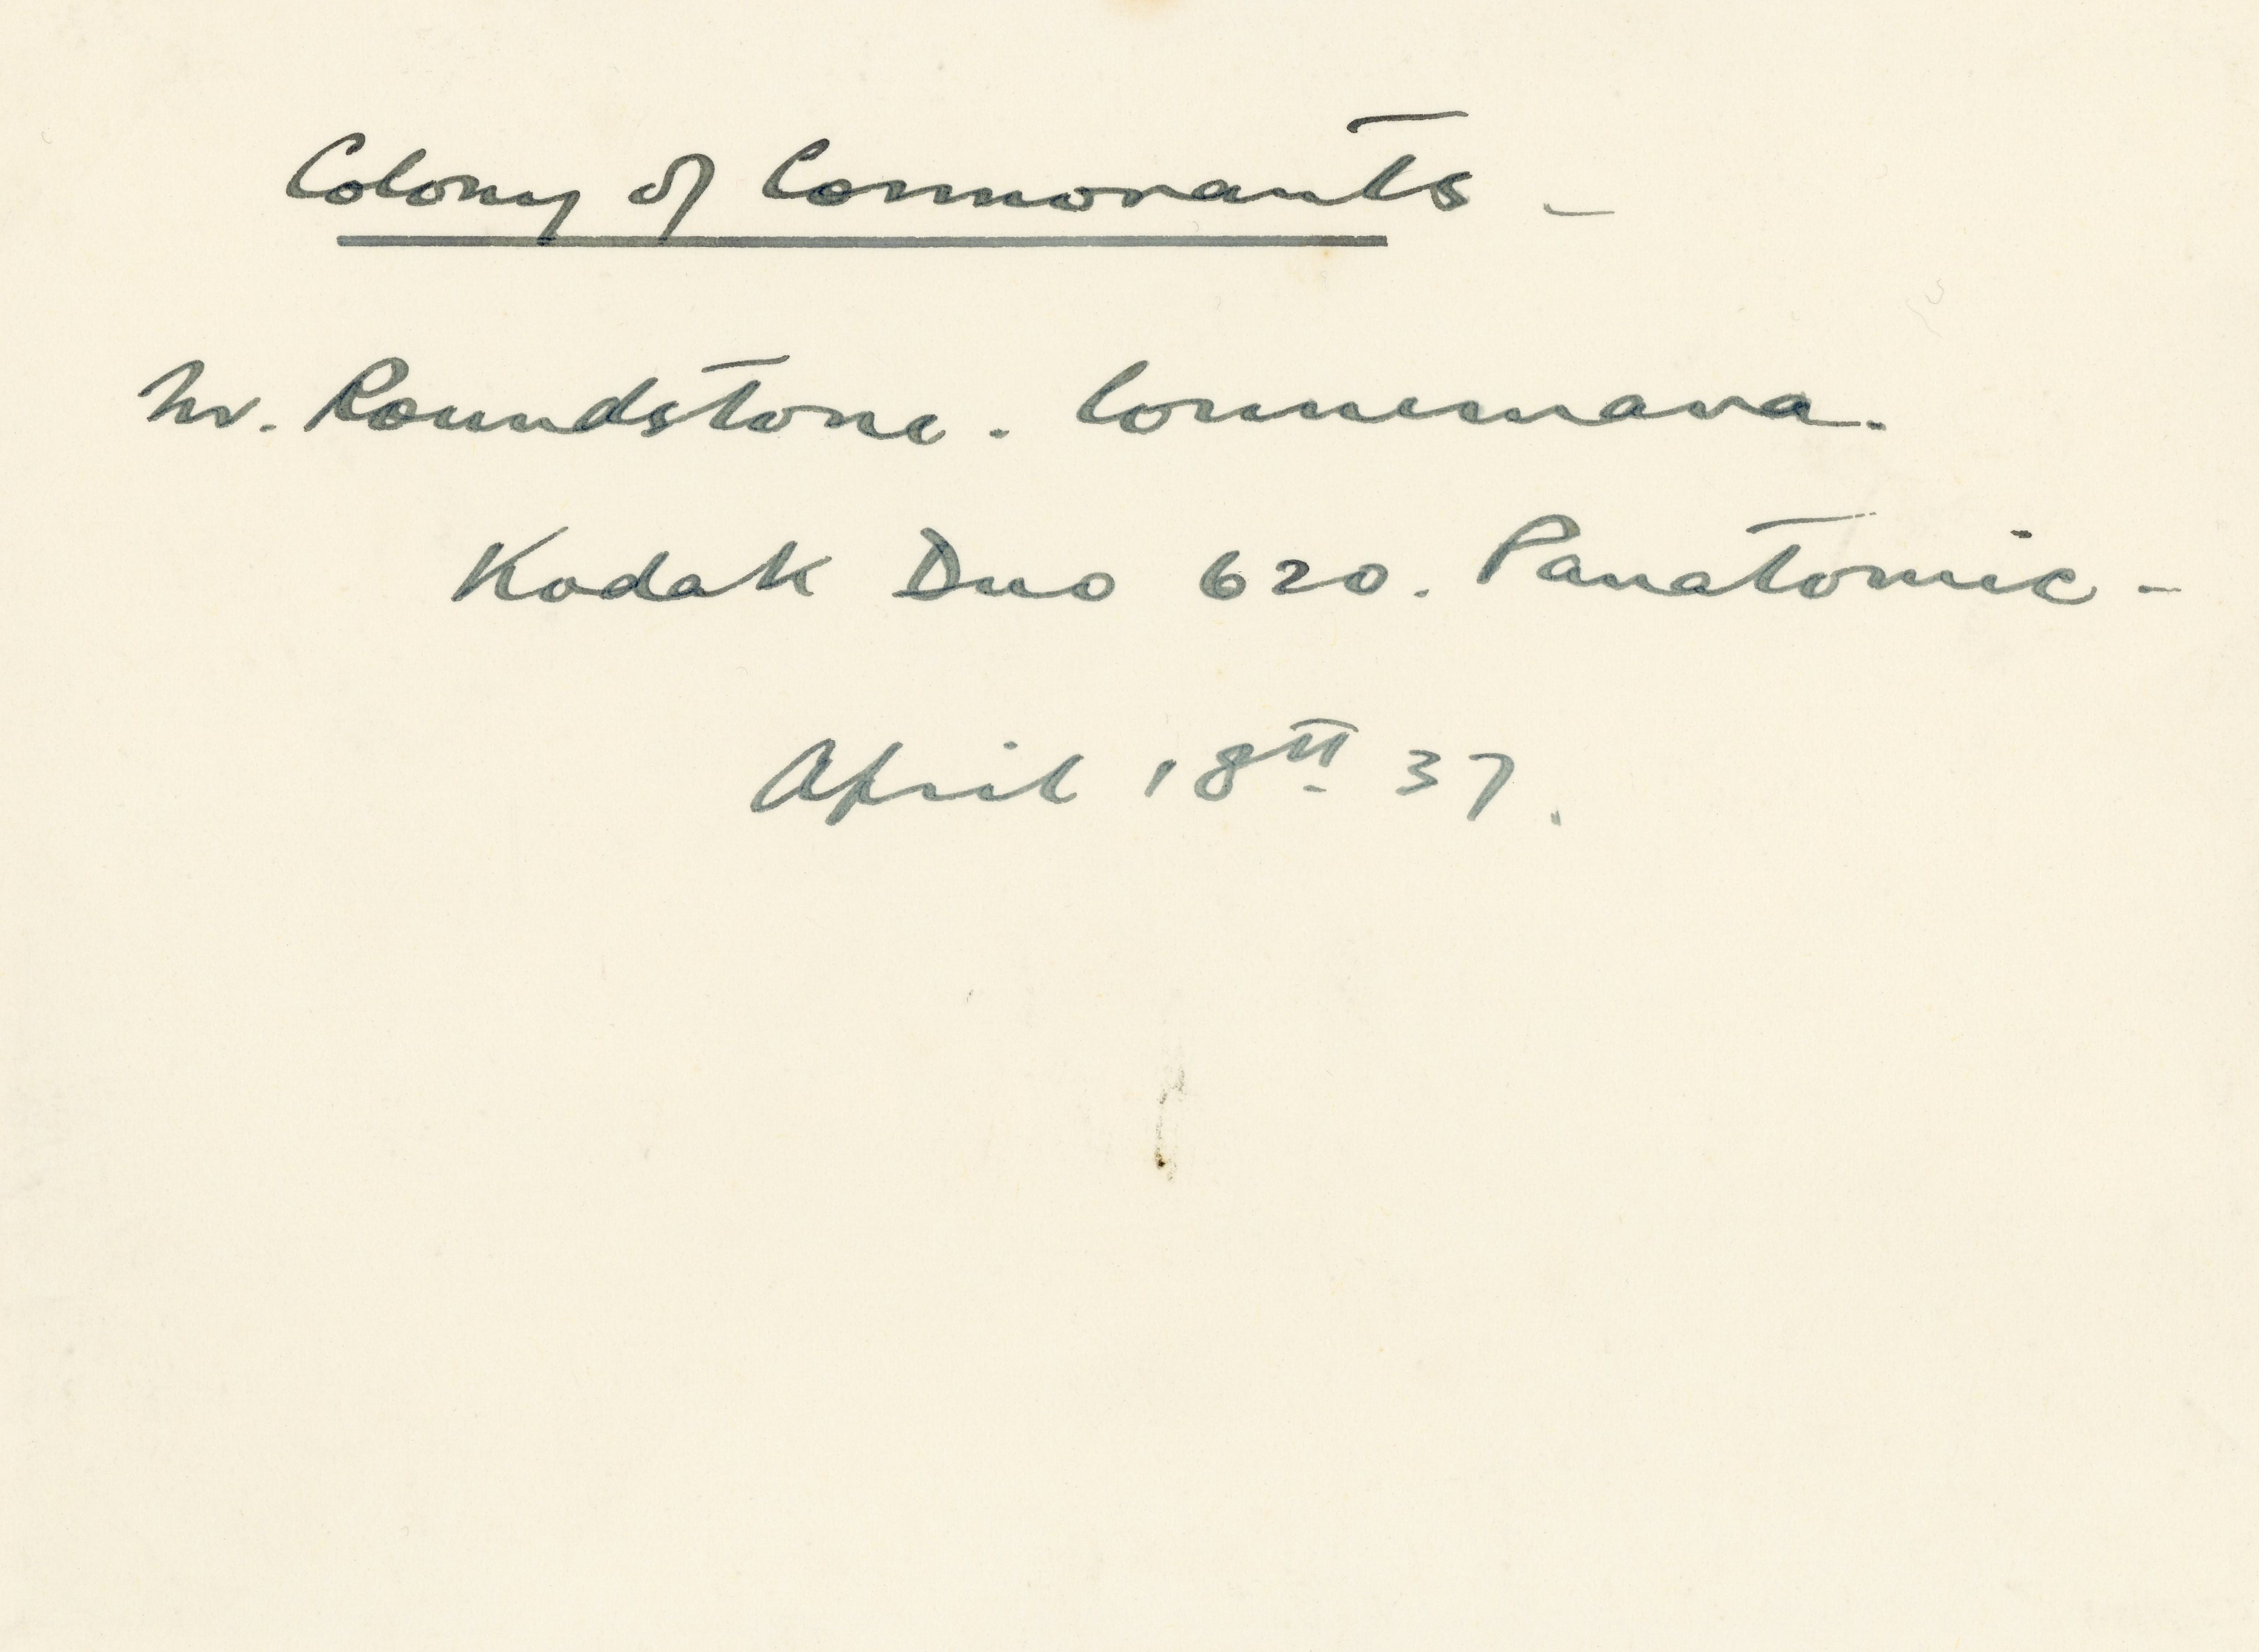 Colony of Cormorants -
Nr. Roundstone. Connemara.
Kodak Duo 620. Panatomic -
April 18th 37.